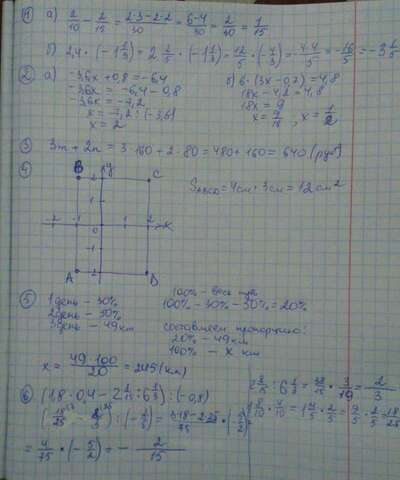 ① а) 2/10 - 2/15 = (2·3-2·2)/30 = (6-4)/30 = 2/30 = 1/15
б) 2,4 · (-1 1/3) = 2 2/5 · (-1 1/3) = 12/5 · (-4/3) = -4·4/5 = -16/5 = -3 1/5
② а) -3,6x + 0,8 = -6,4
-3,6x = -6,4 - 0,8
-3,6x = -7,2
x = -7,2 : (-3,6)
x = 2
б) 6 · (3x - 0,7) = 4,8
18x - 4,2 = 4,8
18x = 9
x = 9/18, x = 1/2
③ 3m + 2n = 3·160 + 2·80 = 480 + 160 = 640 (руб)
④ B 2 y C
1
-2 -1 0 1 2 x
-1
A -2 D
S ABCD = 4см · 3см = 12 см²
⑤ 1 день - 30%
2 день - 50%
3 день - 49 км
100% - весь путь
100% - 30% - 50% = 20%
составляем пропорцию:
20% - 49 км
100% - x км
x = 49·100/20 = 245 (км)
⑥ (1,8 · 0,4 - 2 : 6 1/3) : (-0,8)
: 6 1/3 = · 3/19 = 2/3
= 4/75 · (-5/2) = - 2/15